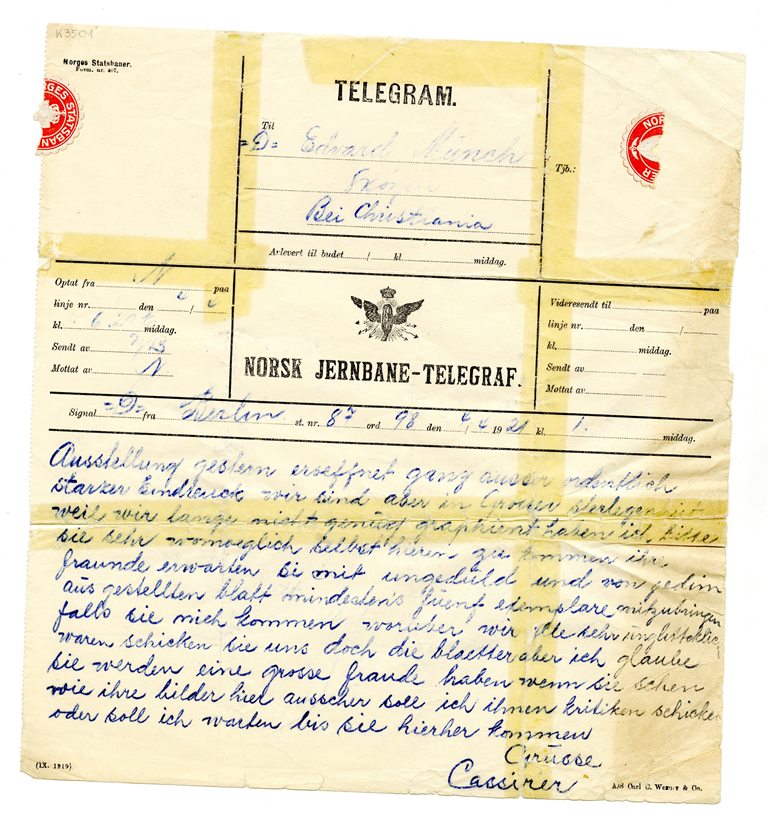 K3501
Norges Statsbaner.
Form. nr. 467.
NORGES STATSBAN
NOR
ER
TELEGRAM.
Til
=D= Edvard Münch
Bei Christiania
Tjb.:
Avlevert til budet / kl. middag.
Optat fra N paa
linje nr. den 4/4
kl. 6 middag.
Sendt av
Mottat av N
NORSK JERNBANE-TELEGRAF.
Videresendt til paa
linje nr. den /
kl. middag.
Sendt av
Mottat av
Signal =D= fra Berlin st. nr. 87 ord 98 den 4/4 1921 kl. 1. middag.
Ausstellung gestern eroeffnet ganz ausser ordentlich
starker Eindruck wir sind aber in Grosser
weil wir lange nicht genug haben ich bitte
sie sehr womoeglich selbst hieren zu kommen ihre
fraunde erwarten si mit ungeduld und von jedim
aus gestellten blatt mindestens fuenf exemplare mitzubringen
falls sie nich kommen woruber wir alle sehr
waren schicken sie uns doch die blaetter aber ich glaube
sie werden eine grosse fraude haben wenn sie sehen
wie ihre bilder hier ausscher soll ich ihnen kritiken schicken
oder soll ich warten bis sie hierher kommen
Grüsse
Cassirer
(IX. 1919)
A/S Carl C. Werner & Co.